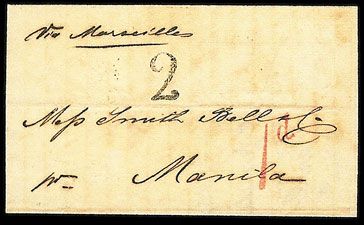 Via Marseilles
2
Mess Smith Bell & Co
1d
pr Manila